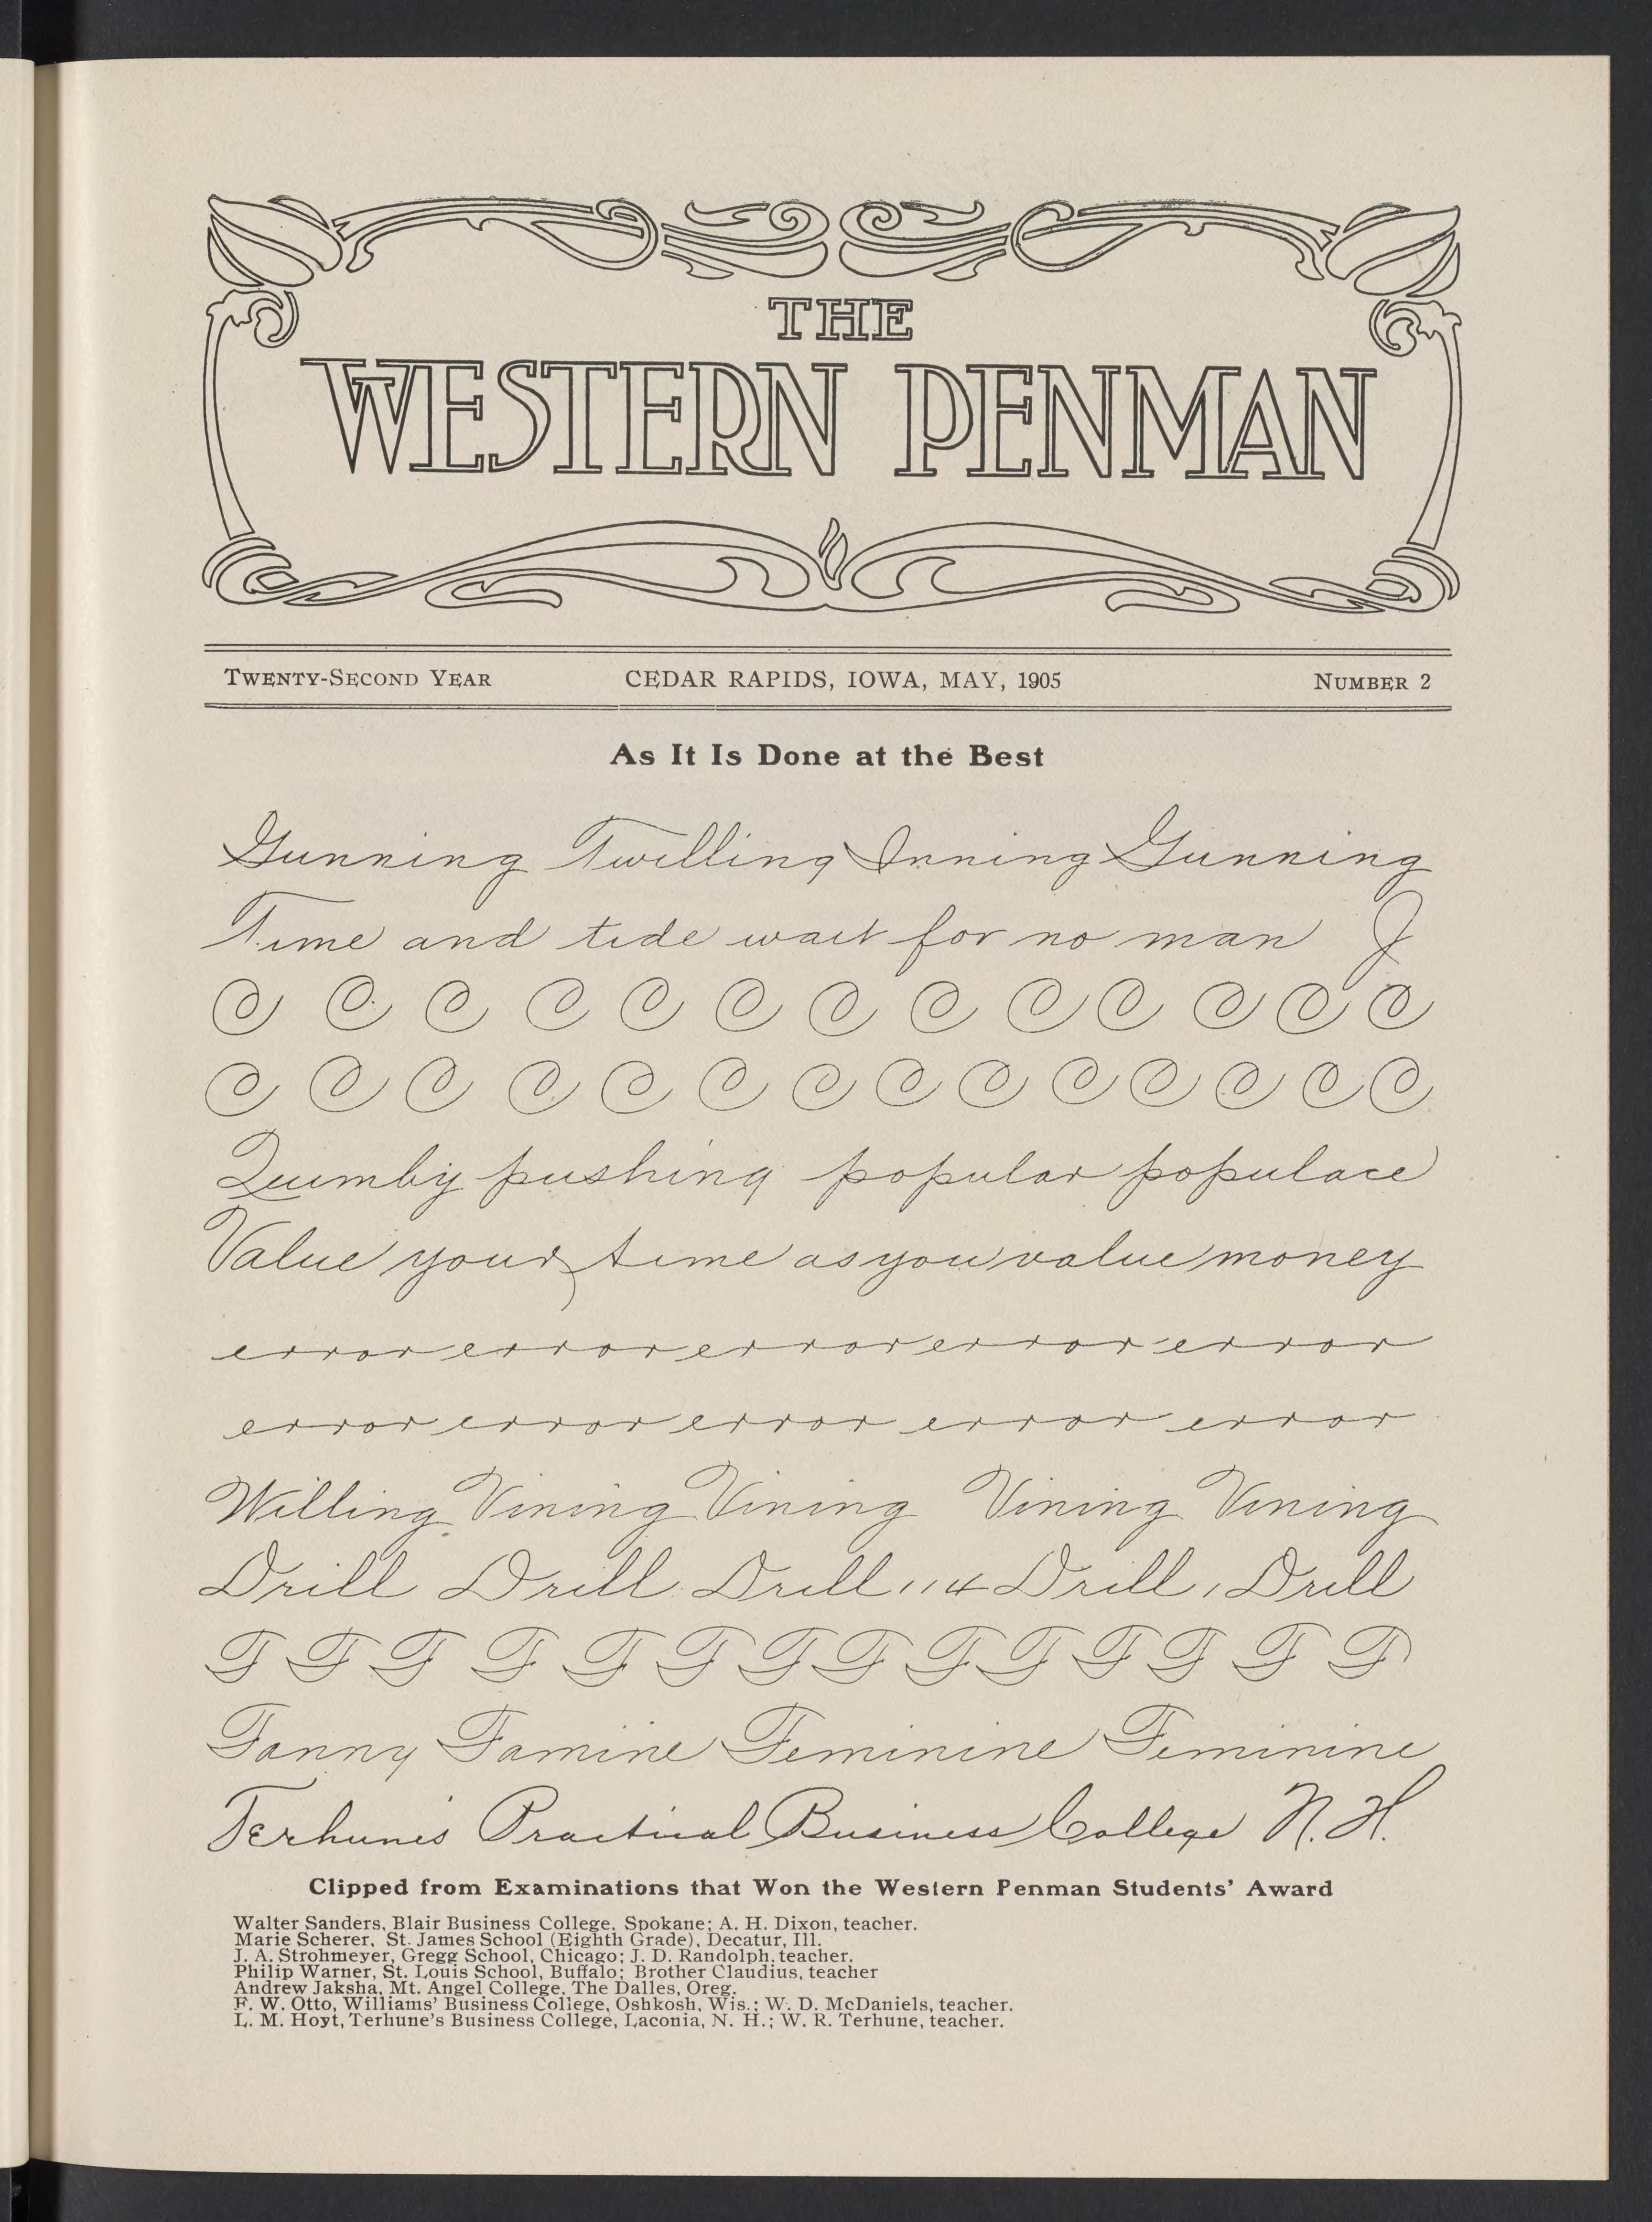 THE
WESTERN PENMAN
TWENTY-SECOND YEAR CEDAR RAPIDS, IOWA, MAY, 1905 NUMBER 2
As It Is Done at the Best
Gunning Twilling Inning Gunning
Time and tide wait for no man J
O O O O O O O O O O O O O
O O O O O O O O O O O O O O
Quimby pushing popular populace
Value your time as you value money
error error error error error
error error error error error
Willing Vining Vining Vining Vining
Drill Drill Drill 114 Drill 1 Drill
F F F F F F F F F F F F F F
Fanny Famine Feminine Feminine
Terhune's Practical Business College N. H.
Clipped from Examinations that Won the Western Penman Students' Award
Walter Sanders, Blair Business College, Spokane; A. H. Dixon, teacher.
Marie Scherer, St. James School (Eighth Grade), Decatur, Ill.
J. A. Strohmeyer, Gregg School, Chicago; J. D. Randolph, teacher.
Philip Warner, St. Louis School, Buffalo; Brother Claudius, teacher
Andrew Jaksha, Mt. Angel College, The Dalles, Oreg.
F. W. Otto, Williams' Business College, Oshkosh, Wis.; W. D. McDaniels, teacher.
L. M. Hoyt, Terhune's Business College, Laconia, N. H.; W. R. Terhune, teacher.